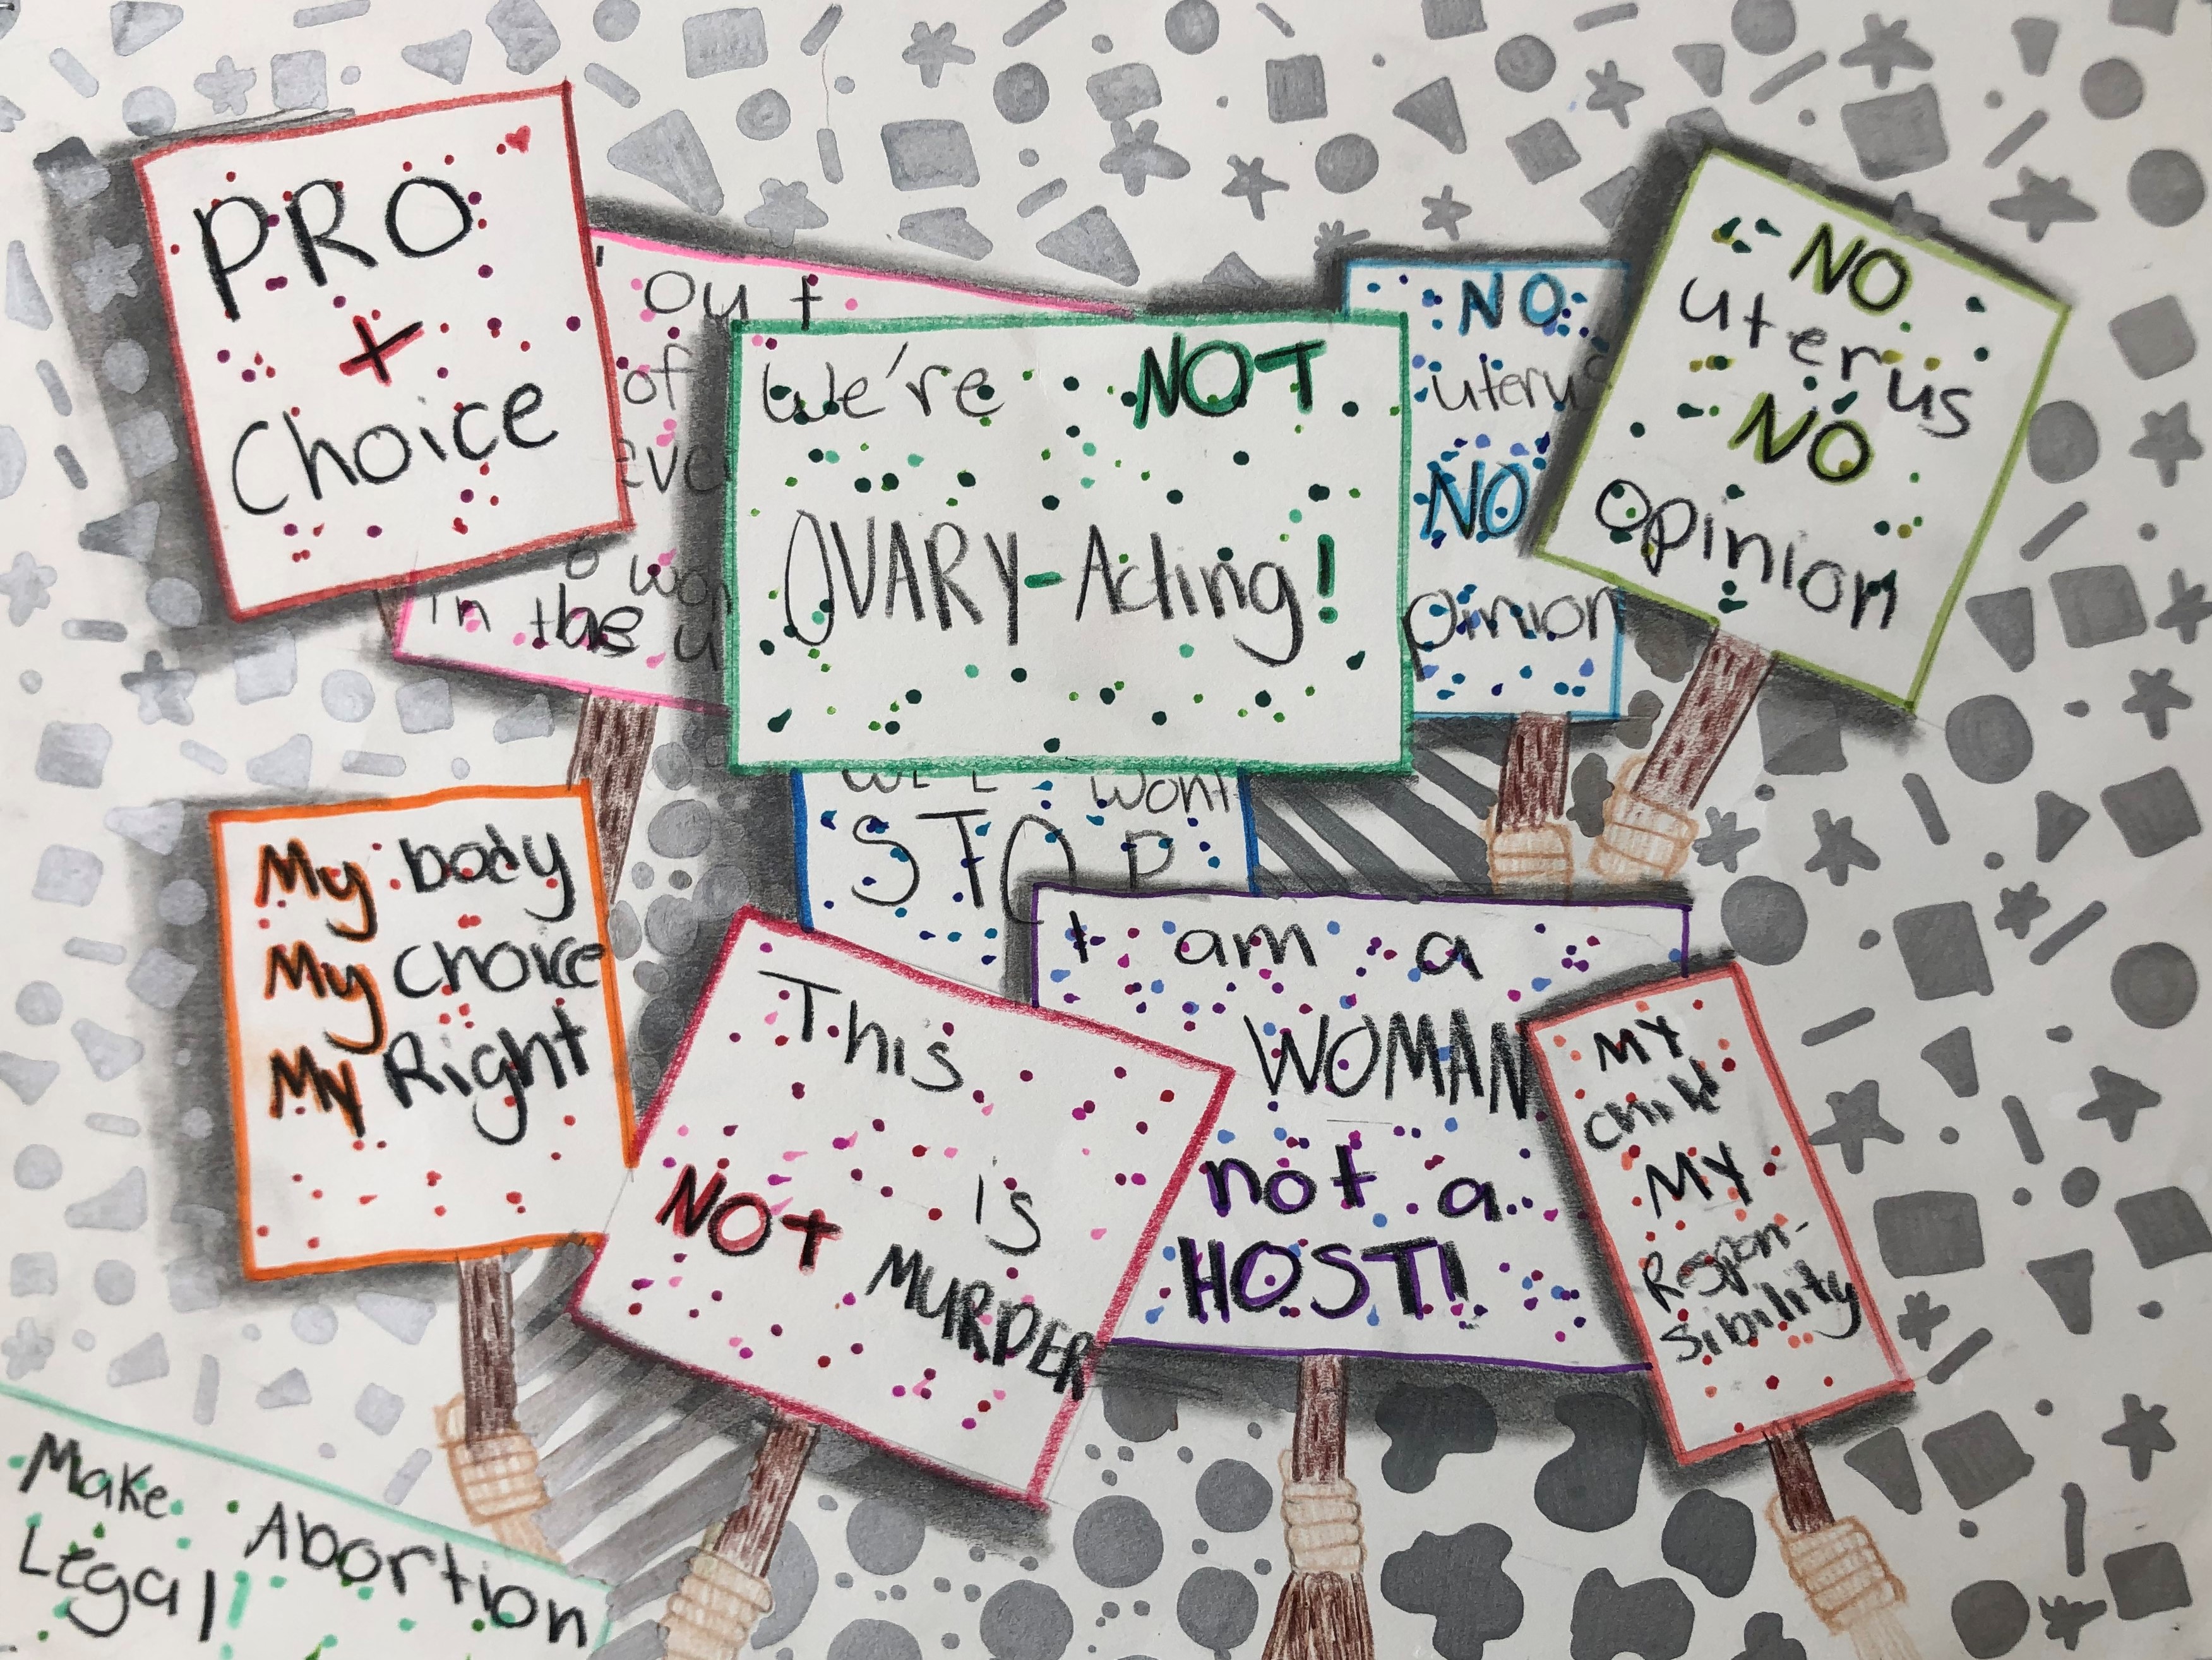 PRO
+
Choice
out
of
in the
We're NOT
OVARY-Acting!
NO
uteru
NO
pinion
NO
uterus
NO
Opinion
My body
My choice
My Right
wont
STOP
This
is
NOT MURDER
I am a
WOMAN
not a
HOST!
MY
child
MY
Respon-
sibility
Make Abortion
Legal!